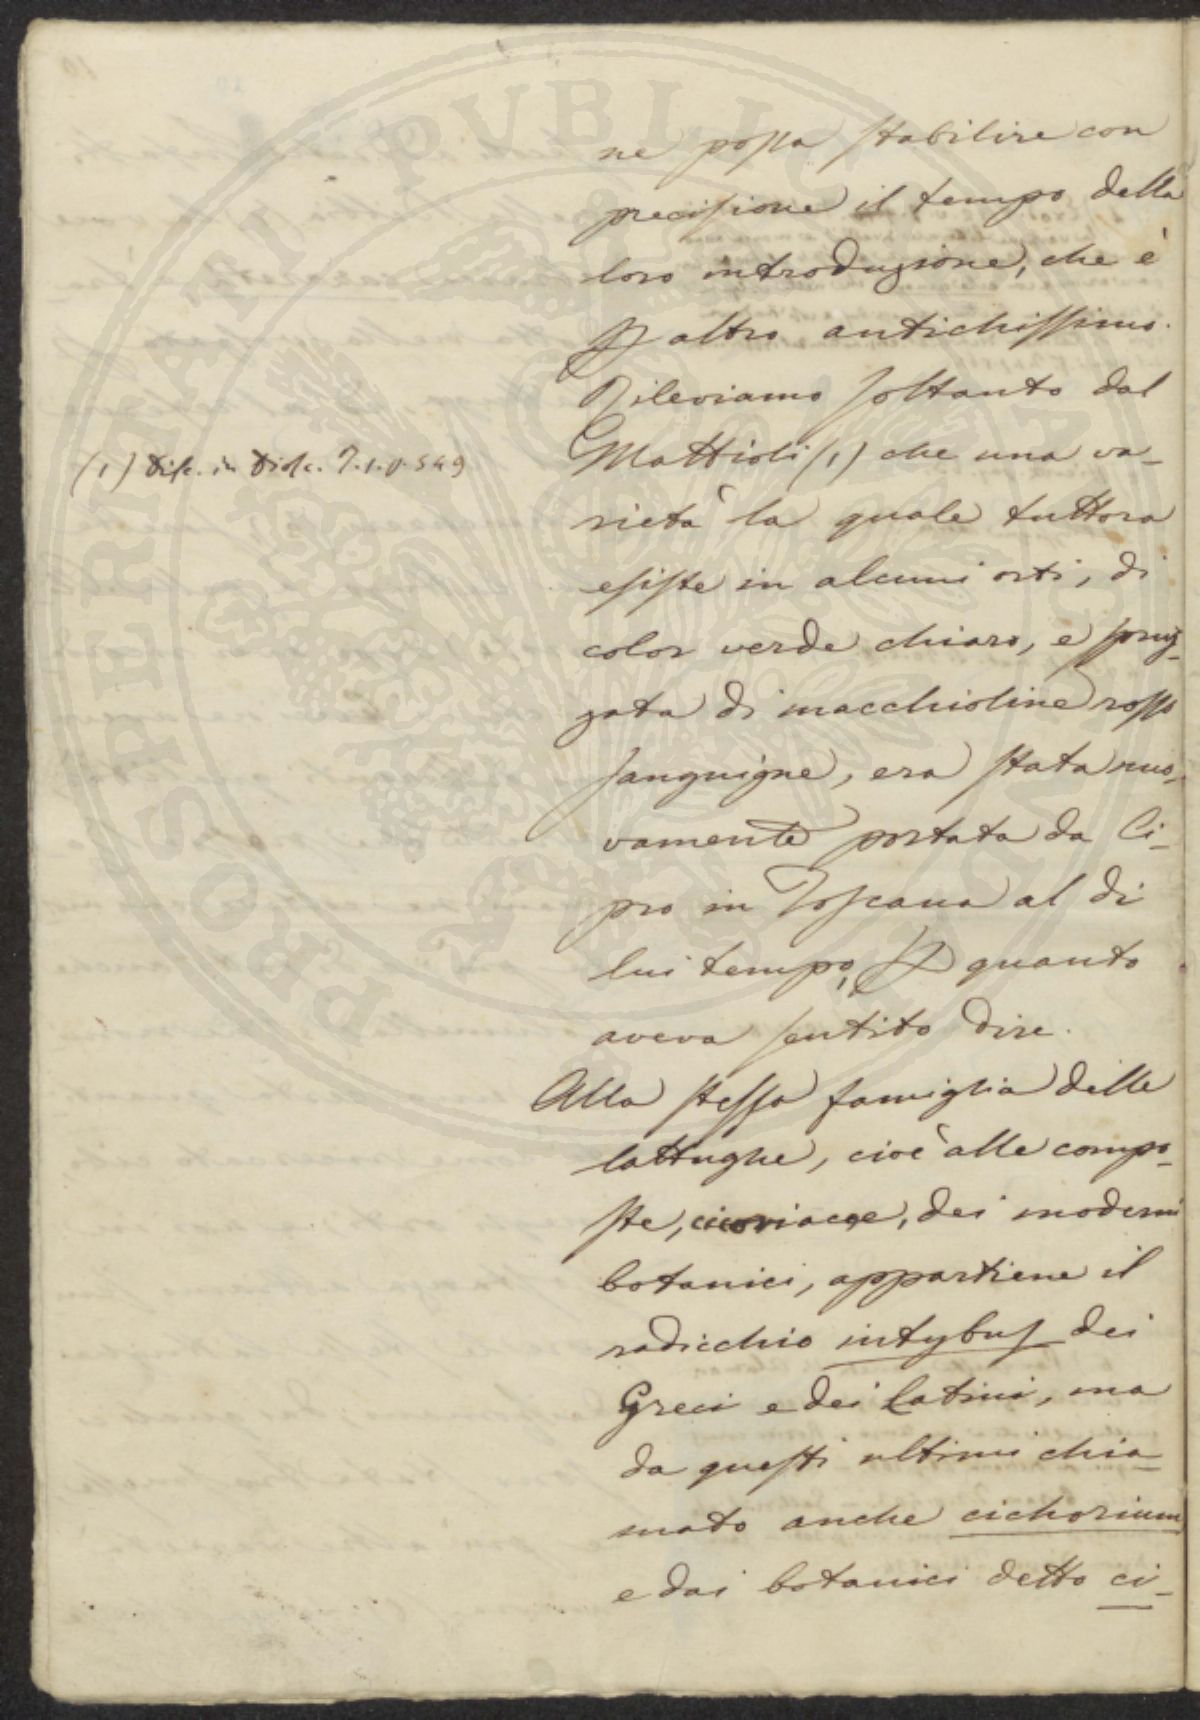 ne possa stabilire con
precisione il tempo della
loro introduzione, che è
p altro antichissimo.
Rileviamo soltanto dal
(1) Disc. in Diosc. T. 1. p. 549
Mattioli (1) che una va-
rietà la quale tuttora
esiste in alcuni orti, di
color verde chiaro, e spruz-
zata di macchioline rosso
sanguigne, era stata nuo-
vamente portata da Ci-
pro in Toscana al di
lui tempo, p quanto
aveva sentito dire.
Alla stessa famiglia delle
lattughe, cioè alle compo-
ste, cicoriacee, dei moderni
botanici, appartiene il
radicchio intybus dei
Greci e dei Latini, ma
da questi ultimi chia-
mato anche cichorium
e dai botanici detto ci-
PROSPERITATI PUBLICAE